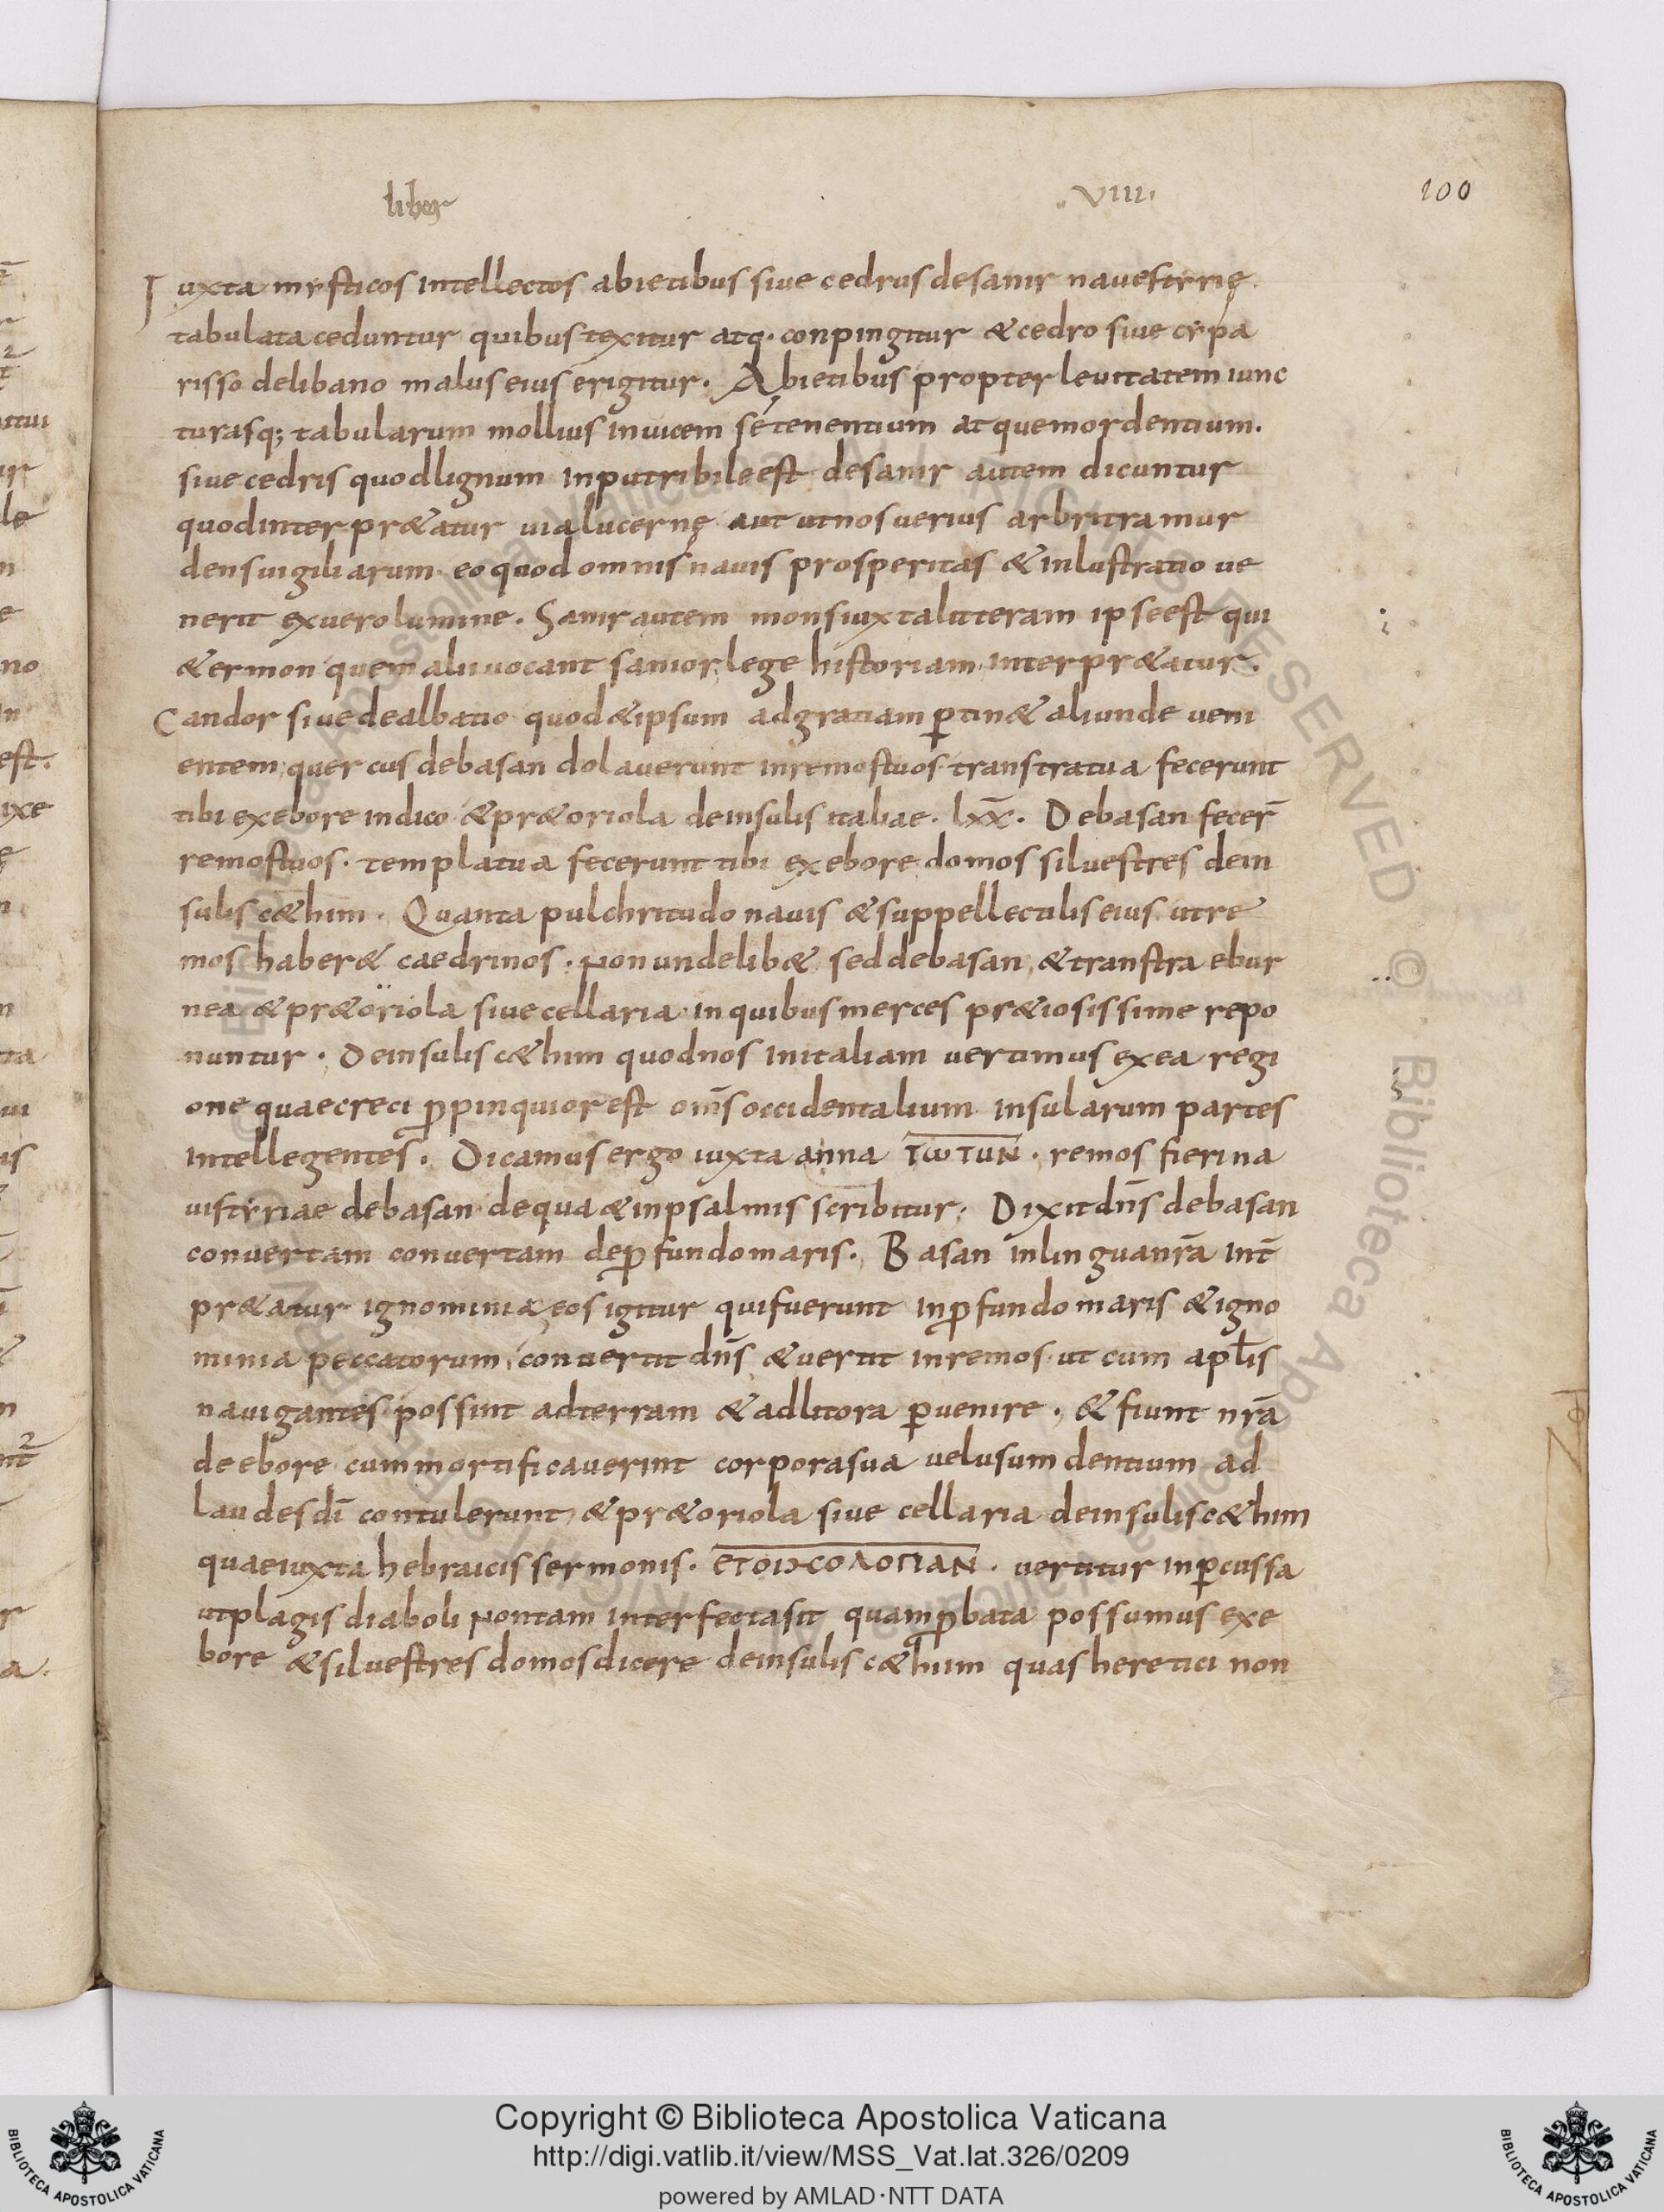 liber
VIIII
100
Iuxta mysticos intellectos abietibus siue cedrus desanir nauestyrię
tabulata ceduntur quibus texitur atq· conpingitur & cedro siue cypa
risso delibano malus eius erigitur· Abietibus propter leuitatem iunc
turasq; tabularum mollius inuicem se tenentium atque mordentium·
siue cedris quod lignum inputribile est desanir autem dicuntur
quod interpr&atur uia lucernę aut ut nos uerius arbritramur
dens uigiliarum eo quod omnis nauis prosperitas & inlustratio ue
nerit ex uero lumine· Sanir autem mons iuxta litteram ipse est qui
& ermon quem alii uocant sanior lege historiam interpr&atur·
Candor siue dealbatio quod & ipsum ad gratiam p̱tin& aliunde ueni
entem quercus debasan dolauerunt in remos tuos transtra tua fecerunt
tibi ex ebore indico & pr&oriola de insulis italiae· lxx̄· Debasan fecer̄
remos tuos· templa tua fecerunt tibi ex ebore domos siluestres dein
sulis c&him· Quanta pulchritudo nauis & suppellectilis eius ut re
mos haber& caedrinos· non un delib& sed debasan & transtra ebur
nea & pr&oriola siue cellaria in quibus merces pr&iosissime repo
nuntur· De insulis c&him quod nos in italiam uertimus ex ea regi
one quae creci p̱pinquior est om̄s occidentalium insularum partes
intellegentes· Dicamus ergo iuxta anna ΤωΤUN· remos fieri na
uis tyriae debasan de qua & in psalmis scribitur· Dixit dn̄s debasan
conuertam conuertam de p̱fundo maris· Basan in lingua nr̄a int̄
pr&atur ignominia eos igitur qui fuerunt in p̱fundo maris & igno
minia peccatorum conuertit dn̄s & uertit in remos ut cum apl̄is
nauigantes possint ad terram & ad litora p̱uenire· & fiunt nr̄a
de ebore cum mortificauerint corpora sua uel usum dentium ad
laudes dī contulerunt & pr&oriola siue cellaria de insulis c&him
quae iuxta hebraicis sermonis· uertitur in p̱cussa
ut plagis diaboli non tam interfecta sit quam p̱bata possumus ex e
bore & siluestres domos dicere de insulis c&him quas heretici non
Copyright © Biblioteca Apostolica Vaticana
http://digi.vatlib.it/view/MSS_Vat.lat.326/0209
powered by AMLAD·NTT DATA
BIBLIOTECA APOSTOLICA VATICANA
BIBLIOTECA APOSTOLICA VATICANA